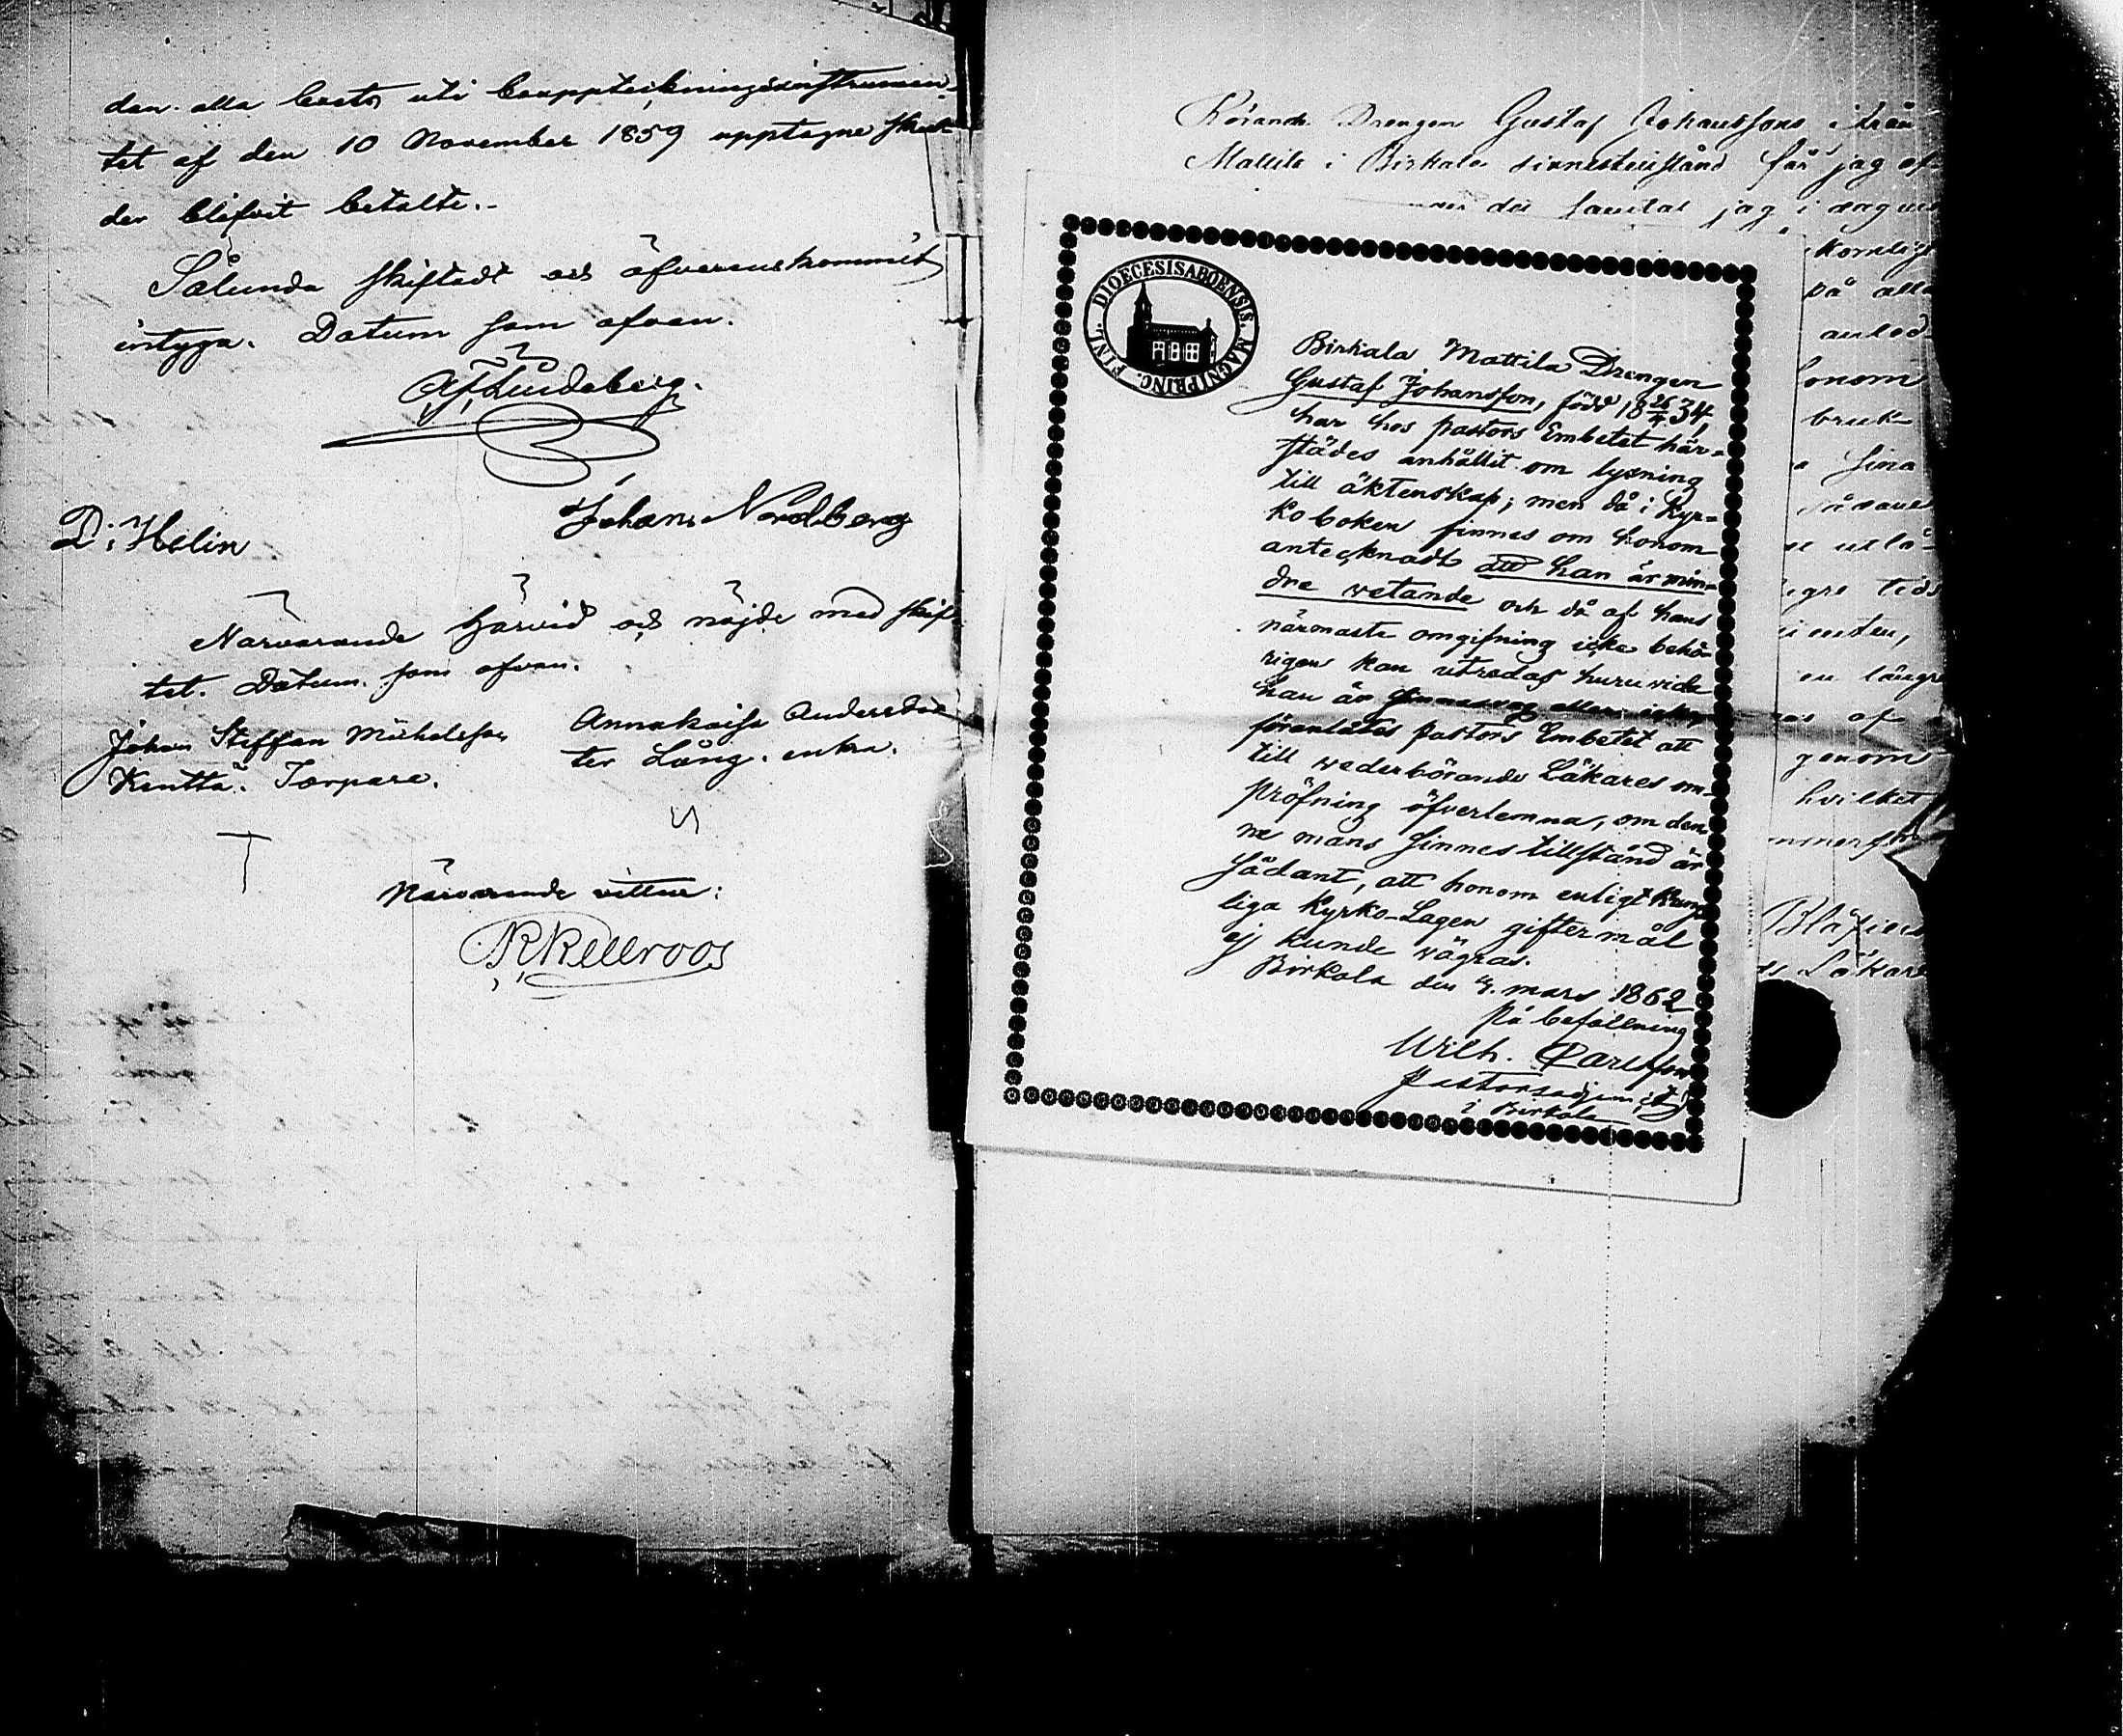 den. alla boets uti bouppteckningsinstrumen
tet af den 10 November 1859 upptagne skul
der blifvit betalte.-
Sålunda skiftadt och öfverenskommit
intyga. Datum som ofvan.
Lindeberg.
Johan Nordberg
D: Helin
Närvarande härvid och nöjde med skif
tet. Datum som ofvan.
Johan Steffan Mickelsson
Kenttä. Torpare.
Annakaisa Andersdot
ter Lång. enka.
Närvarande vittne:
Kellroos
Rörande Drengen Gustaf Johanssons i från
Mattila i Birkala sinnestillstånd får jag af
jag i
på alla
honom
bruk
sina
sådane
tids
en längre
af
genom
hvilket
Läkare
FINL. DIOECESIS ABOENSIS. MAGNI PRINC.
Birkala Mattila Drengen
Gustaf Johansson, född 18 26/4 34,
har hos pastors Embetet här-
städes anhållit om lysning
till äktenskap; men då i Kyr-
koboken finnes om honom
antecknadt att han är min-
dre vetande och då af hans
närmaste omgifning icke behö-
rigen kan utredas huruvida
han är sinnessvag eller icke,
föranlåtes pastors Embetet att
till wederbörande Läkares om-
pröfning öfverlemna, om den-
ne mans sinnestillstånd är
sådant, att honom enligt Kung-
liga Kyrko-Lagen giftermål
ej kunde vägras.
Birkala den 4. mars 1862
på befallning
Wilh. Carlsson
pastorsadjunct
i Birkala